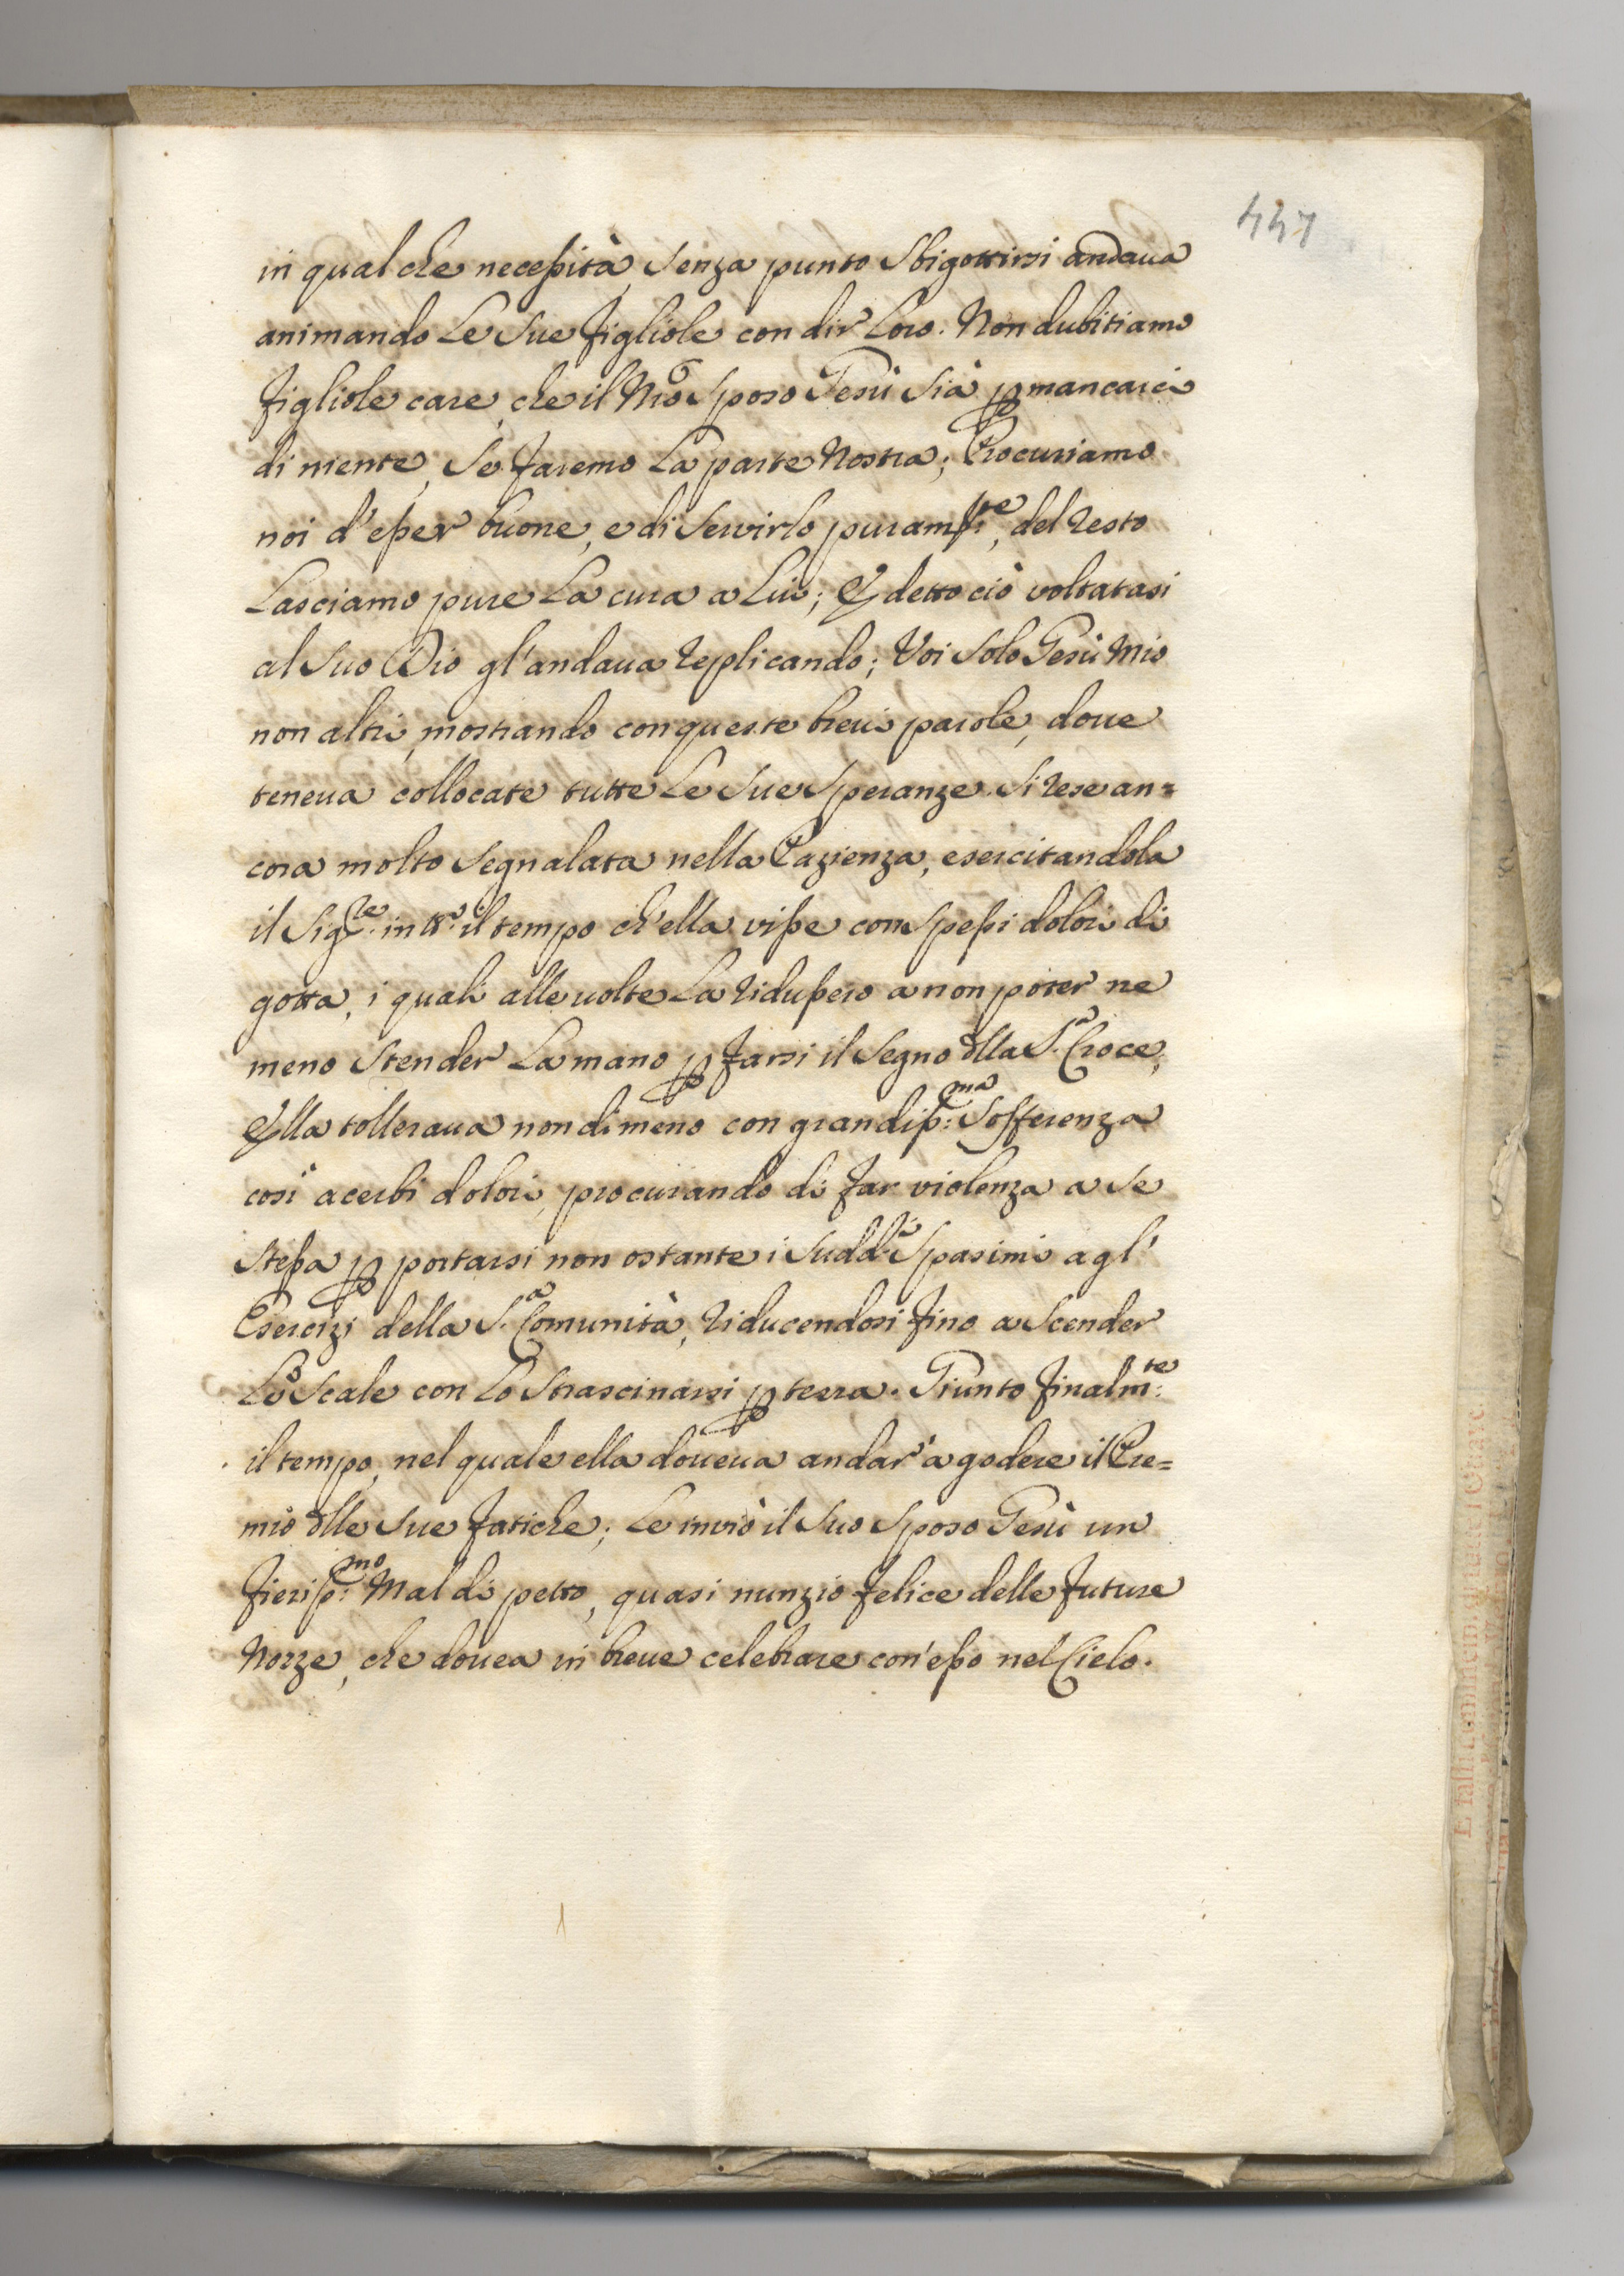 447
in qual che neceßità, senza punto sbigottirsi andaua
animando Le sue figliole con dir' Loro. Non dubitiamo
figliole care, che il Nr̃o Sposo Gesù sia ꝑ mancarci
di niente, se faremo La parte Nostra; Procuriamo
noi d'eßer buone, e di servirlo puramte, del resto
Lasciamo pure La cura a Lui; E detto ciò voltatasi
al suo Dio gl'andaua replicando; Voi solo Gesù Mio
non altri, mostrando con queste breui parole, doue
teneua collocate tutte Le sue speranze. Si rese an=
cora molto segnalata nella Pazienza, esercitandola
il Sigre: in tto: il tempo ch'ella viße con speßi dolori di
gotta, i quali alle uolte La ridußero a non poter ne
meno stender La mano ꝑ farsi il segno dlla S.a Croce,
Ella tolleraua nondimeno con grandiß:ma Sofferenza
così acerbi dolori, procurando di far violenza a se
steßa ꝑ portarsi non ostante i sudd:i Spasimi agl'
Esercizi della S.a Comunità, riducendosi fino a scender
Le Scale con Lo strascinarsi ꝑ terra. Giunto finalm:te
il tempo, nel quale ella doueua andar' a godere il Pre=
mio dlle sue fatiche; Le inviò il suo Sposo Gesù un
fieriß:mo Mal di petto, quasi nunzio felice delle future
Nozze, che douea in breue celebrare con' eßo nel Cielo.